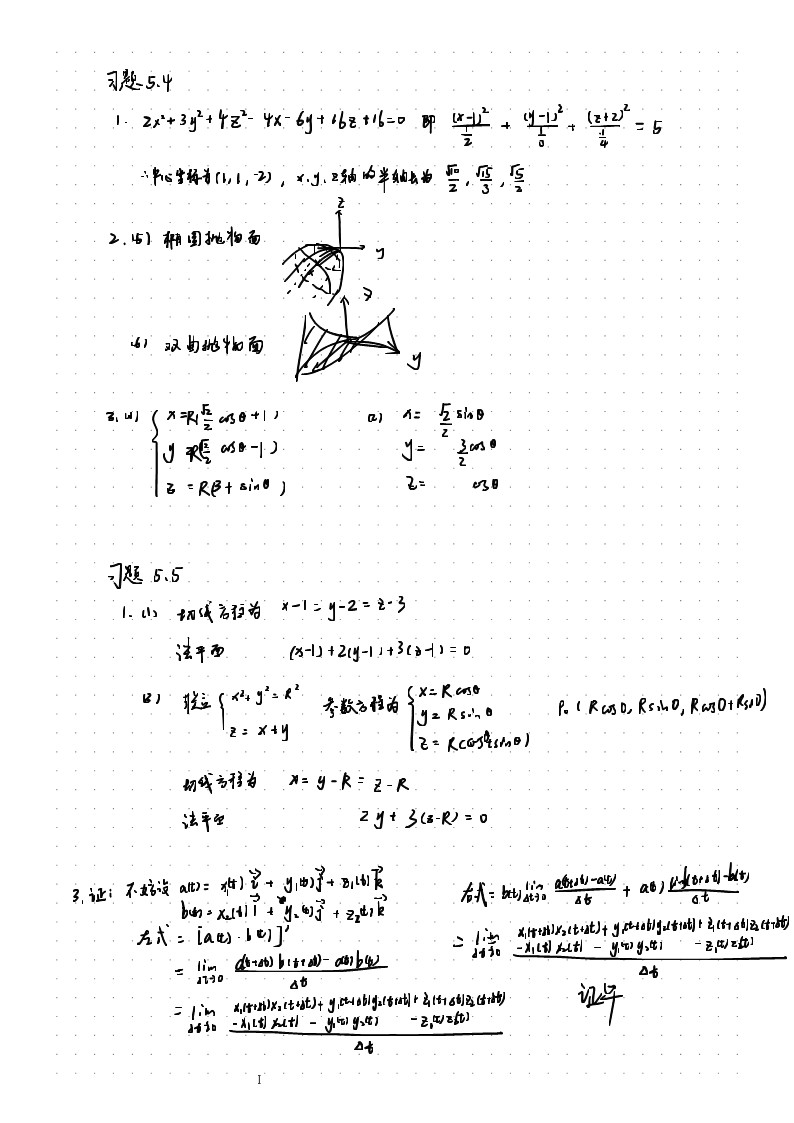 习题 5.4
1. 2x²+3y²+4z²-4x-6y+16z+16=0 即 (x-1)²/(1/2) + (y-1)²/(1/0) + (z+2)²/(1/4) = 5
∴中心坐标为(1,1,-2), x.y.z轴的半轴长为 √10/2, √15/3, √5/2
2.(5) 椭圆抛物面
z
y
(6) 双曲抛物面
z
y
3.(1) { x=R(√2/2 cosθ+1)
y=R(√2/2 cosθ-1)
z=R(3+sinθ)
(2) x= √2/2 sinθ
y= 3/2 cosθ
z= cosθ
习题 5.5
1.(1) 切线方程为 x-1=y-2=z-3
法平面 (x-1)+2(y-1)+3(z-1)=0
(3) 联立 { x²+y²=R²
z=x+y
参数方程为 { x=Rcosθ
y=Rsinθ
z=R(cosθ+sinθ)
P₀(Rcos0, Rsin0, Rcos0+Rsin0)
切线方程为 x=y-R=z-R
法平面 2y+3(z-R)=0
3.证: 不妨设 a(t)=x₁(t)i+y₁(t)j+z₁(t)k
b(t)=x₂(t)i+y₂(t)j+z₂(t)k
左式=[a(t)·b(t)]'
=lim Δt→0 (a(t+Δt)b(t+Δt)-a(t)b(t))/Δt
=lim Δt→0 (x₁(t+Δt)x₂(t+Δt)+y₁(t+Δt)y₂(t+Δt)+z₁(t+Δt)z₂(t+Δt)-x₁(t)x₂(t)-y₁(t)y₂(t)-z₁(t)z₂(t))/Δt
右式=b(t)lim Δt→0 (a(t+Δt)-a(t))/Δt + a(t) (b(t+Δt)-b(t))/Δt
=lim Δt→0 (x₁(t+Δt)x₂(t+Δt)+y₁(t+Δt)y₂(t+Δt)+z₁(t+Δt)z₂(t+Δt)-x₁(t)x₂(t)-y₁(t)y₂(t)-z₁(t)z₂(t))/Δt
证毕
I